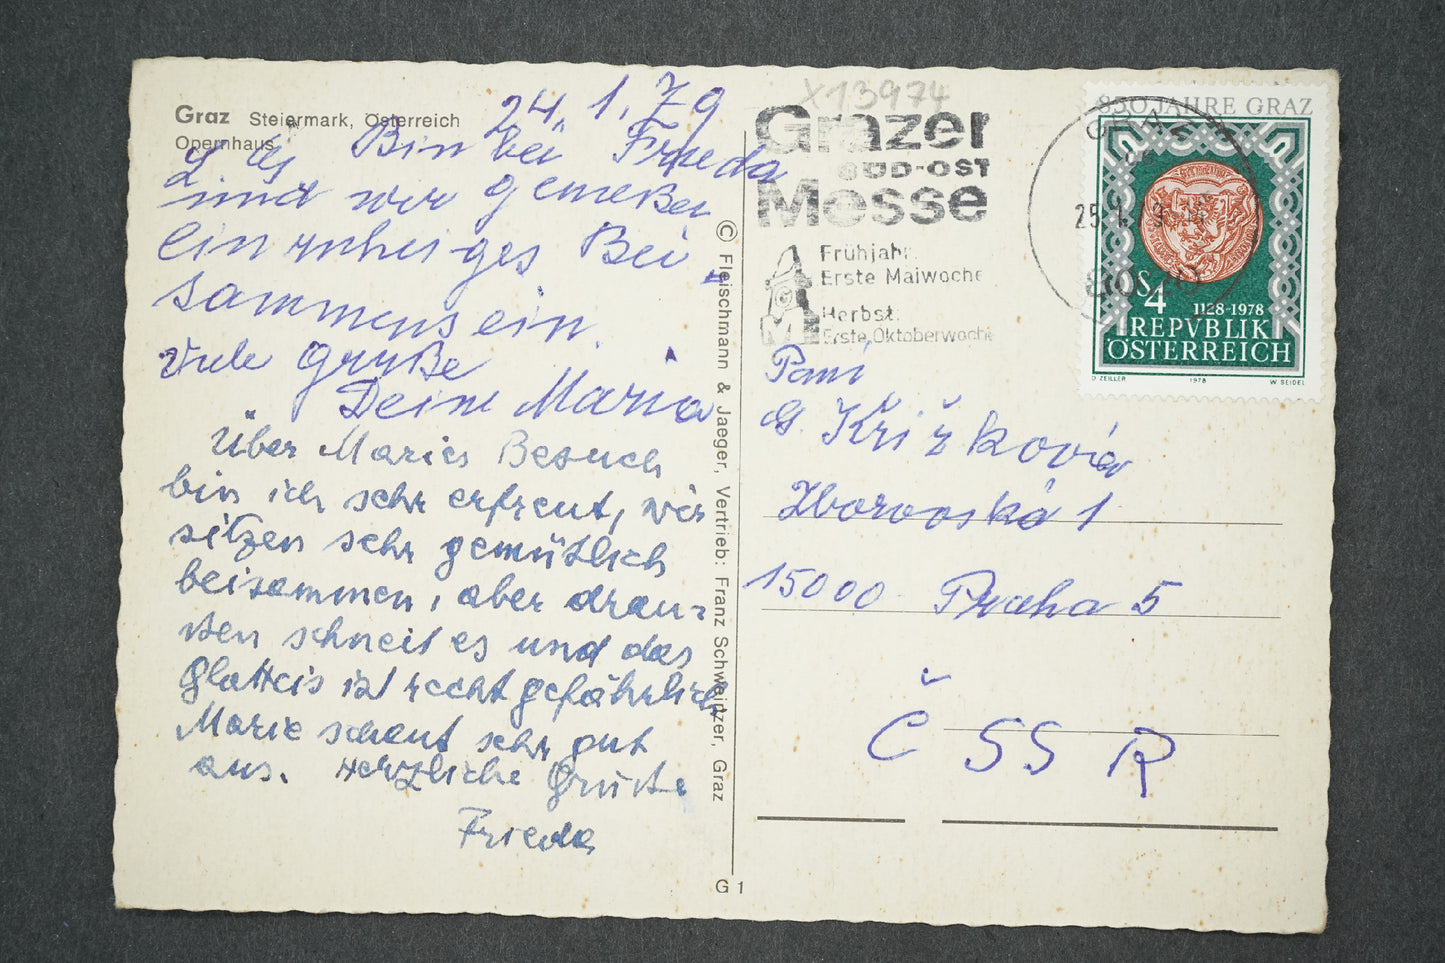 Graz Steiermark, Österreich
Opernhaus
24. 1. 79
Bin bei Frieda
und wir genießen
ein ruhiges Bei-
sammensein.
Viele Grüße
Deine Maria
Über Maries Besuch
bin ich sehr erfreut, wir
sitzen sehr gemütlich
beisammen, aber drau-
ßen schneit es und das
Glatteis ist recht gefährlich
Marie schaut sehr gut
aus. Herzliche Grüße
Frieda
© Fleischmann & Jaeger, Vertrieb: Franz Schweintzer, Graz
G 1
X13974
Grazer
SÜD-OST
Messe
Frühjahr:
Erste Maiwoche
Herbst:
Erste Oktoberwoche
GRAZ
25. 1.
850 JAHRE GRAZ
S 4
1128-1978
REPVBLIK
ÖSTERREICH
O ZEILLER 1978 W SEIDEL
Paní
G. Křižková
Zborovská 1
15000 Praha 5
ČSSR